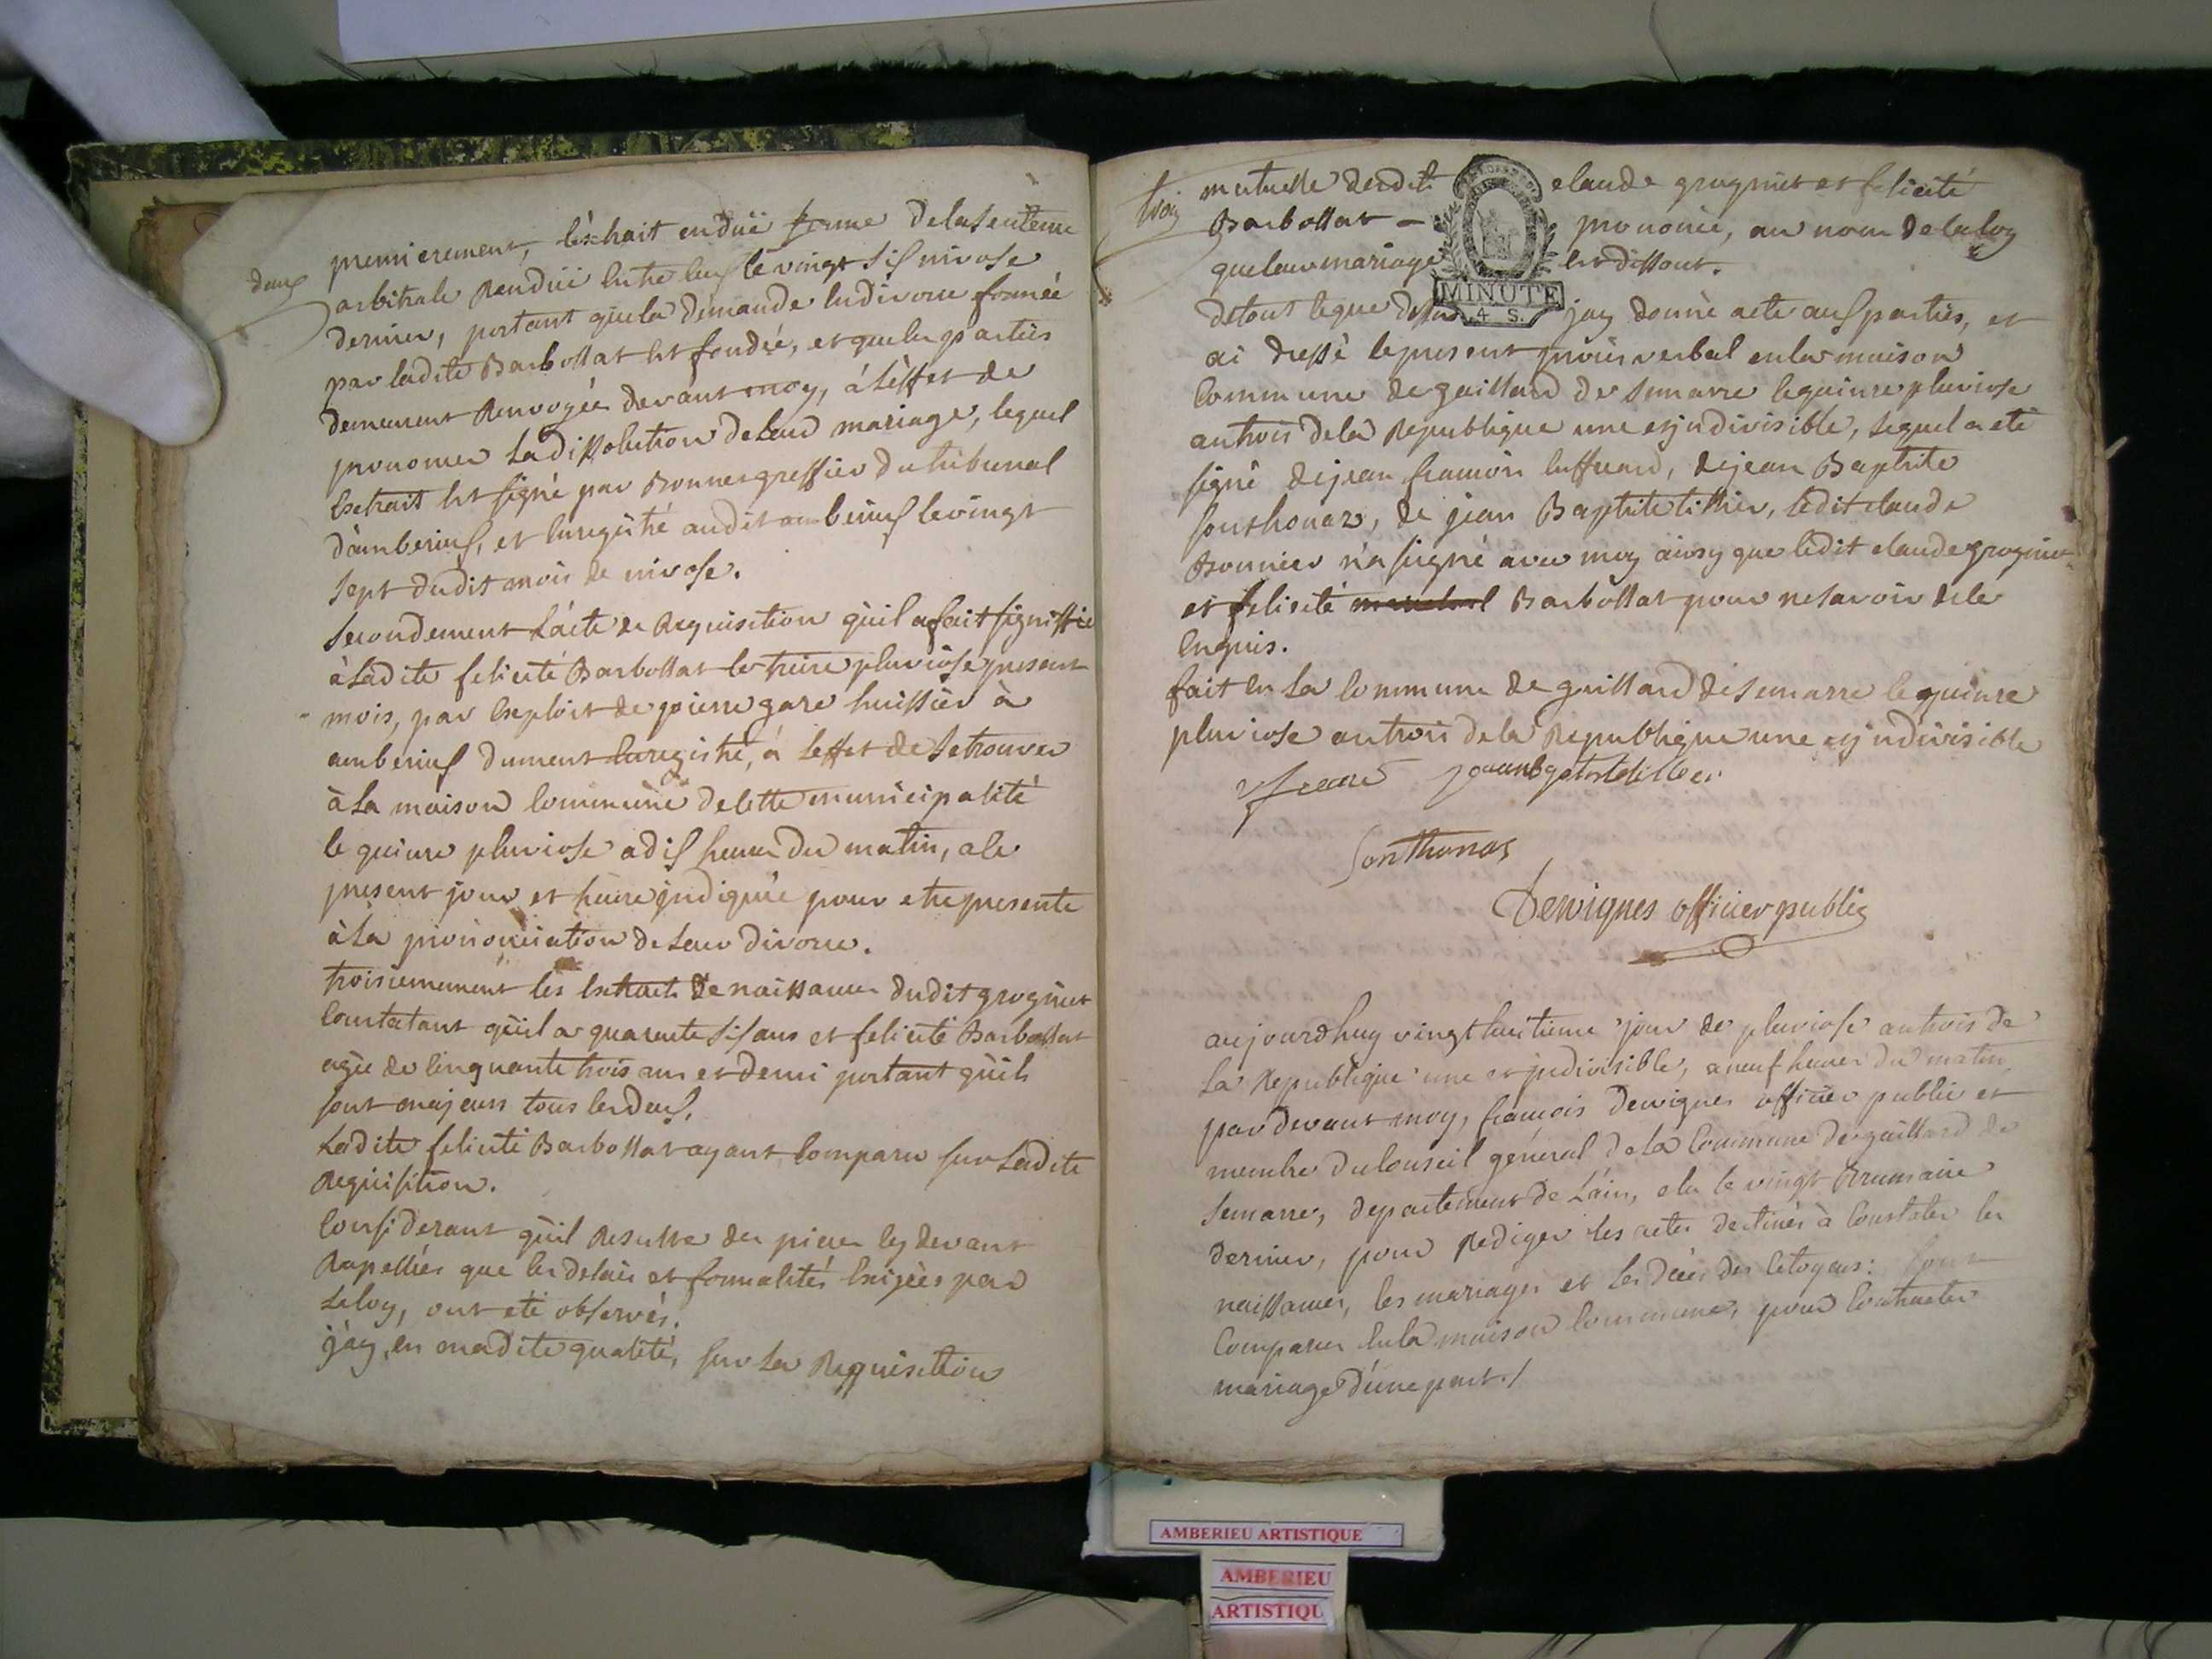 deux
premierement, l'extrait en düe forme de la Sentence
arbitrale Rendüe Entre Eux le vingt Six nivose
dernier, portant que la demande En divorce formée
par ladite Barbollat Est fondée, et que les parties
demeurent Renvoyée devant moy, á L'éffet de
prononcer La dissolution de Leur mariage, lequel
Extrait Est signé par Bonnet greffier du tribunal
d'amberieux, et Enregistré audit amberieux le vingt
Sept dudit mois de nivose.
Secondement L'acte de Requisition qu'il a fait signiffier
à Ladite felicité Barbollat le treize pluviose present
mois, par Exploit de pierre gare huissier à
amberieux dument Enregistré, á L'effet de Se trouver
à La maison Commune de Cette municipalité
le quinze pluviose a dix heures du matin, a le
present jour et heure jndiquée pour etre presente
à La prononciation de Leur divorce.
troisiemement les Extraits de naissances dudit grognet
Constatant qu'il a quarante Six ans et felicité Barbollat
agée de Cinquante trois ans et demi portant qu'ils
sont majeurs tous les deux.
Ladite felicité Barbollat ayant Comparu sur Ladite
Requisition.
Considerant qu'il Resulte des pieces Cy devant
Rapellées que les delais et formalités Exigées par
La loy, ont été observés.
j'ay, en madite qualité, sur La Requisition
trois
mutuelle desdits claude grognet et felicité
Barbollat - prononcé, au nom de la loy
que leur mariage est dissout.
MINUTE
4 S.
de tout le que dessus jay donné acte aux parties, et
ai dressé le present procès verbal en la maison
Commune de gaillard de Semarre le quinze pluviose
an trois de la Republique une et jndivisible, Lequel a eté
signé de jean françois , de jean Baptiste
Sonthonaz, de jean Baptiste tillier, Ledit claude
Bonnier n'a signé avec moy ainsy que Ledit claude grognet
et felicité Barbollat pour ne savoir de le
Enquis.
fait En La Commune de gaillard de Semarre le quinze
pluviose an trois de la Republique une et jndivisible
Sonthonas
Dewignes officier public
aujourdhuy vingt huitieme jour de pluviose an trois de
La Republique une et jndivisible, a neuf heures du matin
par devant moy, françois Dewignes officier public et
membre du Conseil général de La Commune de gaillard de
Semarre, departement de L'ain, elu le vingt Brumaire
dernier, pour Rediger les actes destinés à Constater les
naissances, les mariages et les décés des Citoyens: sont
Comparus En La maison Commune, pour Contracter
mariage d'une part./
AMBERIEU ARTISTIQUE
AMBERIEU
ARTISTIQU